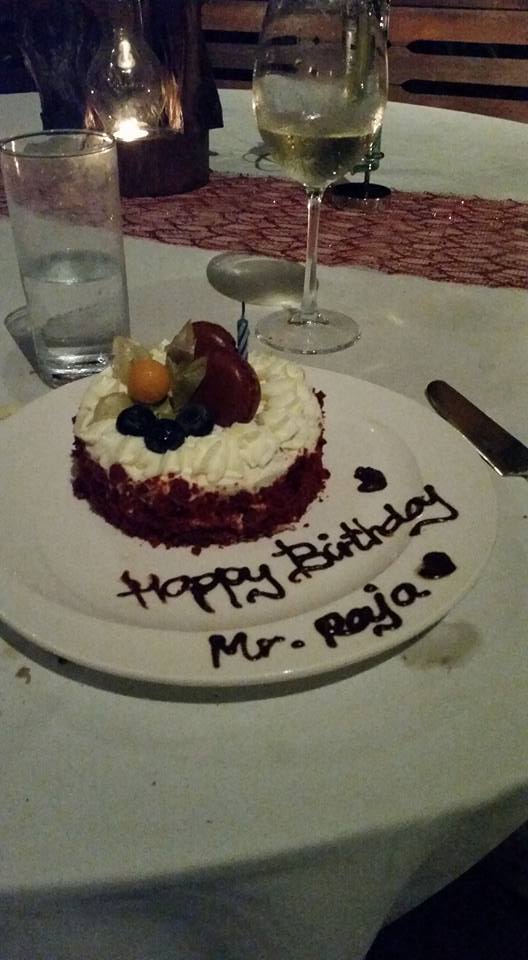 Happy Birthday
Mr. Raja